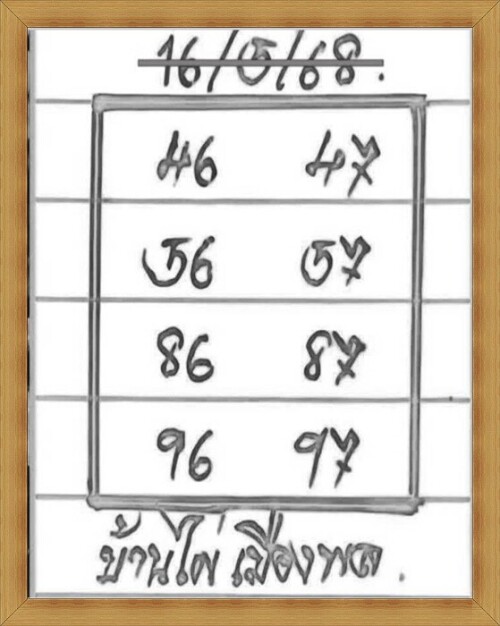 16/5/68.
46 47
56 57
86 87
96 97
บ้านไผ่ เมืองพล.